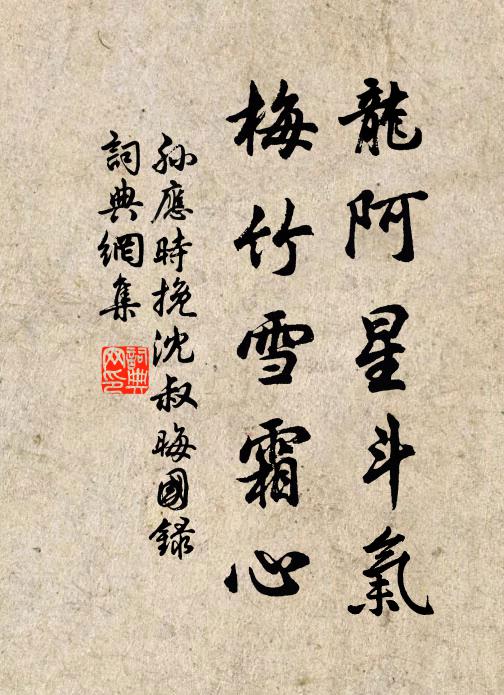 龍阿星斗氣
梅竹雪霜心
孙應時挽沈叔晦國録
詞典網集
詞典
网印